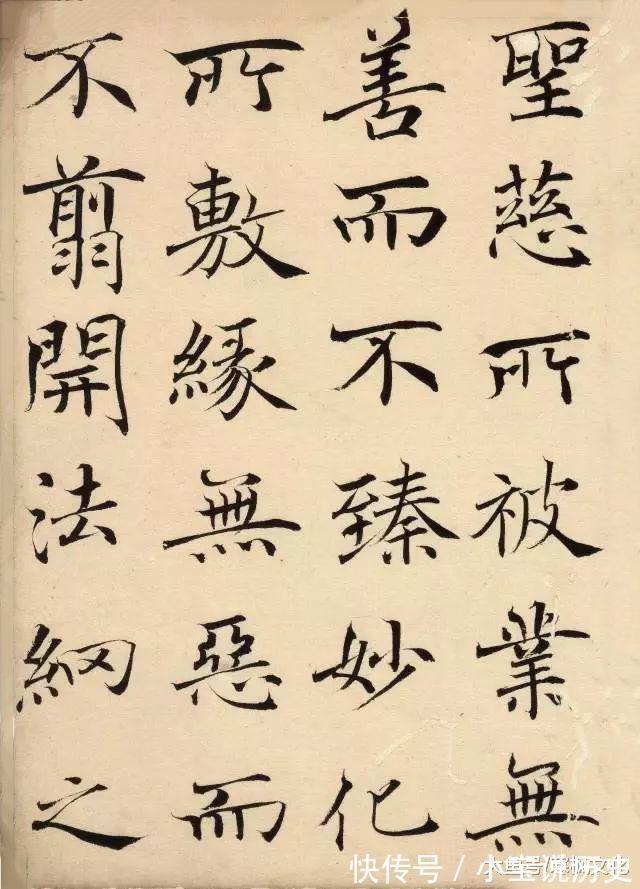 聖慈所被業無
善而不臻妙化
所敷緣無惡而
不翦開法網之
快传号/小宝说历史